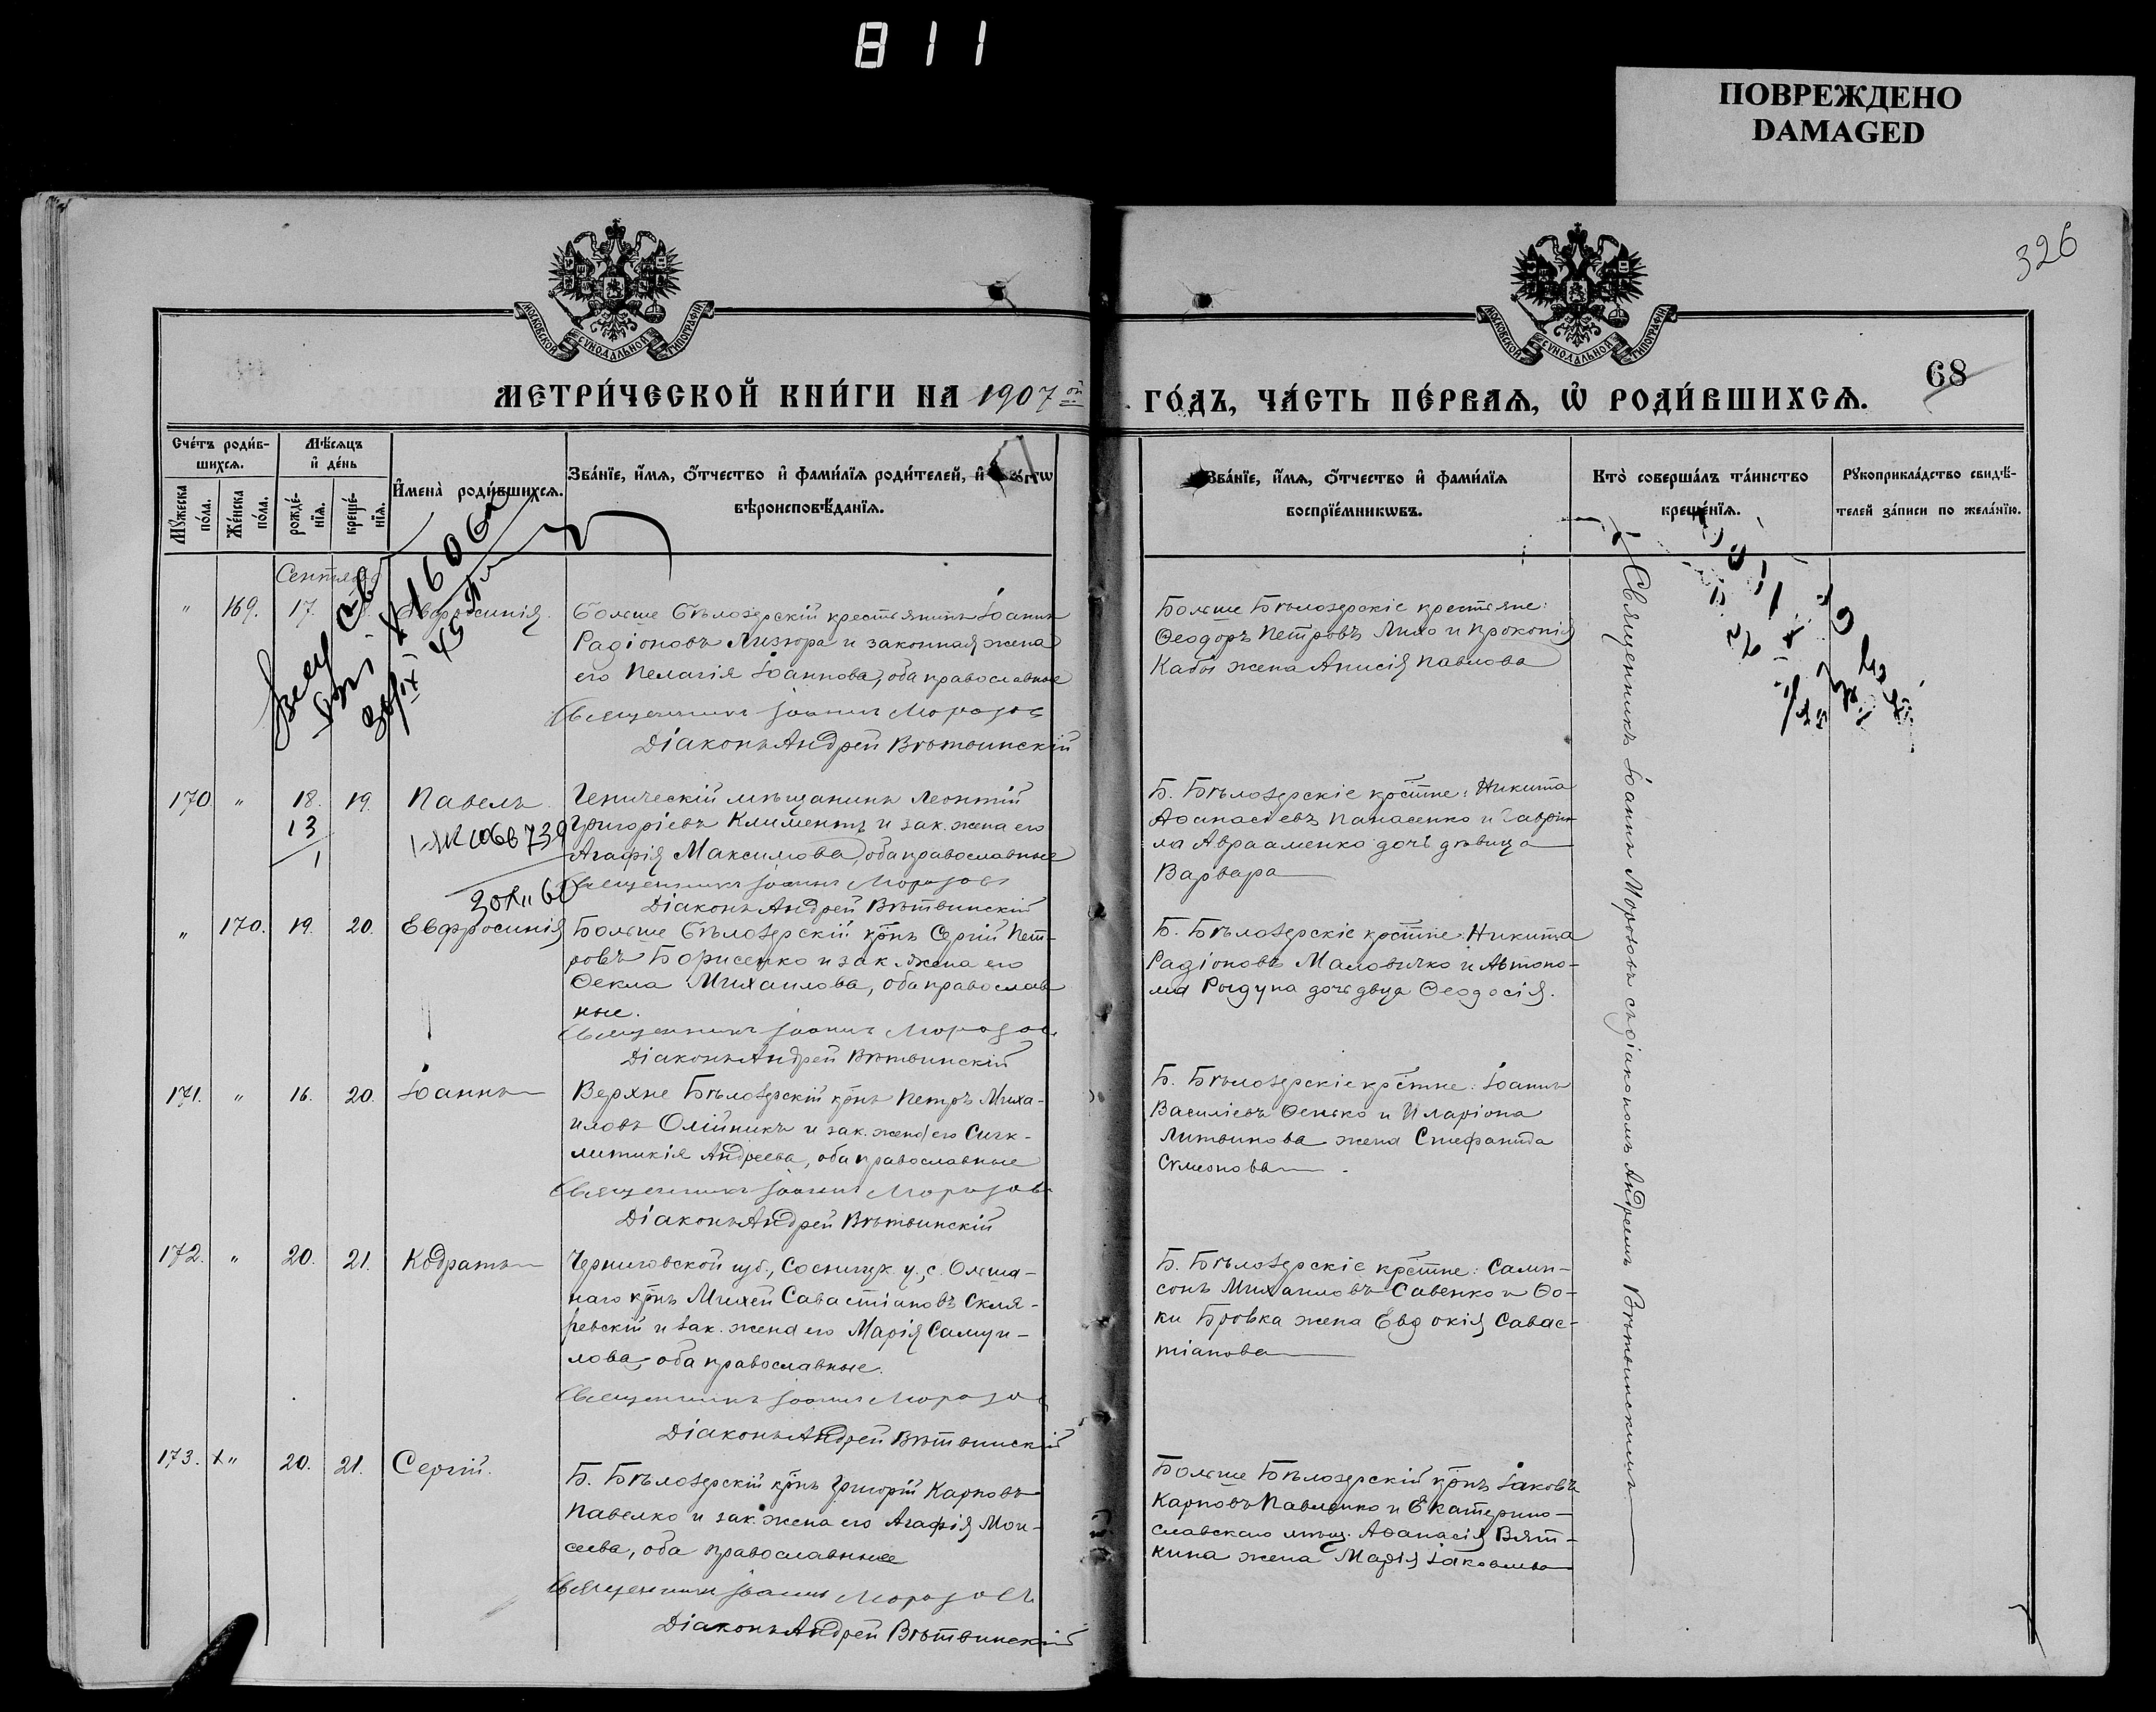 811
ПОВРЕЖДЕНО
DAMAGED
326
68
МОСКОВСКОЙ СУНОДАЛЬНОЙ ТИПОГРАФІИ
МОСКОВСКОЙ СУНОДАЛЬНОЙ ТИПОГРАФІИ
МЕТРИ́ЧЕСКОЙ КНИ́ГИ НА 1907 ой
ГО́ДЪ, ЧА́СТЬ ПЕ́РВАѦ, Ѡ҆ РОДИ́ВШИХСѦ.
Сче́тъ роди́в-
шихсѧ.
Мѣ́сѧцъ
и҆ де́нь
Мꙋ́жеска по́ла.
Же́нска по́ла.
рожде́-
нїѧ.
креще́-
нїѧ.
И҆мена̀ роди́вшихсѧ.
Зва́нїе, и҆́мѧ, ѻ҆́тчество и҆ фами́лїѧ роди́телей, и҆
вѣроисповѣ́данїѧ.
Зва́нїе, и҆́мѧ, ѻ҆́тчество и҆ фами́лїѧ
воспрїе́мникѡвъ.
Кто̀ соверша́лъ та́инство
креще́нїѧ.
Рꙋкоприкла́дство свидѣ́-
телей за́писи по жела́нїю.
Сентябрь
" 169. 17. Евфросинія.
Больше Бѣлозерскій крестьянинъ Іоаннъ
Радіоновъ Лизюра и законная жена
его Пелагія Іоаннова, оба православные
Священникъ Іоаннъ Морозовъ
Діаконъ Андрей Вѣтвинскій
Больше Бѣлозерскіе крестьяне:
Ѳеодоръ Петровъ Лихо и Прокопія
Кабы жена Анисія Павлова
170. " 18. 19. Павелъ
13
1
30 XII 60
Геническій мѣщанинъ Леонтій
Григоріевъ Климентъ и зак. жена его
Агафія Максимова, оба православные
Священникъ Іоаннъ Морозовъ
Діаконъ Андрей Вѣтвинскій
Б. Бѣлозерскіе крестне: Никита
Аѳанасіевъ Панасенко и Гаври-
ла Авраменко дочь дѣвица
Варвара
" 170. 19. 20. Евфросинія
Больше Бѣлозерскій крнъ Сергій Пет-
ровъ Борисенко и зак. жена его
Ѳекла Михаилова, оба православ
ные.
Священникъ Іоаннъ Морозовъ
Діаконъ Андрей Вѣтвинскій
Б. Бѣлозерскіе крестне: Никита
Радіоновъ Маловичко и Автоно-
ма Рыдуна дочь двца Ѳеодосія.
171. " 16. 20. Іоаннъ
Верхне Бѣлозерскій крнъ Петръ Миха-
иловъ Олійникъ и зак. жена его Сигк-
литикія Андреева, оба православные
Священникъ Іоаннъ Морозовъ
Діаконъ Андрей Вѣтвинскій
Б. Бѣлозерскіе крестне: Іоаннъ
Василіевъ Ѳенько и Иларіона
Литвинова жена Стефанида
Симеонова
172. " 20. 21. Кодратъ
Черниговской губ., Сосницк. у., с. Ольша-
наго крнъ Михей Савастіановъ Скля-
ревскій и зак. жена его Марія Самуи-
лова, оба православные.
Священникъ Іоаннъ Морозовъ
Діаконъ Андрей Вѣтвинскій
Б. Бѣлозерскіе крестне: Самп-
сонъ Михаиловъ Савенко и Ѳо-
ки Бровка жена Евдокія Савас-
тіанова
173. х " 20. 21. Сергій.
Б. Бѣлозерскій крнъ Григорій Карповъ
Павелко и зак. жена его Агафія Мои-
сеева, оба православные
Священникъ Іоаннъ Морозовъ
Діаконъ Андрей Вѣтвинскій
Больше Бѣлозерскій крнъ Іаковъ
Карповъ Павленко и Екатерино-
славскаго мѣщ. Аѳанасія Вят-
кина жена Марія Іаковлева
Священникъ Іоаннъ Морозовъ съ діакономъ Андреемъ Вѣтвинскимъ